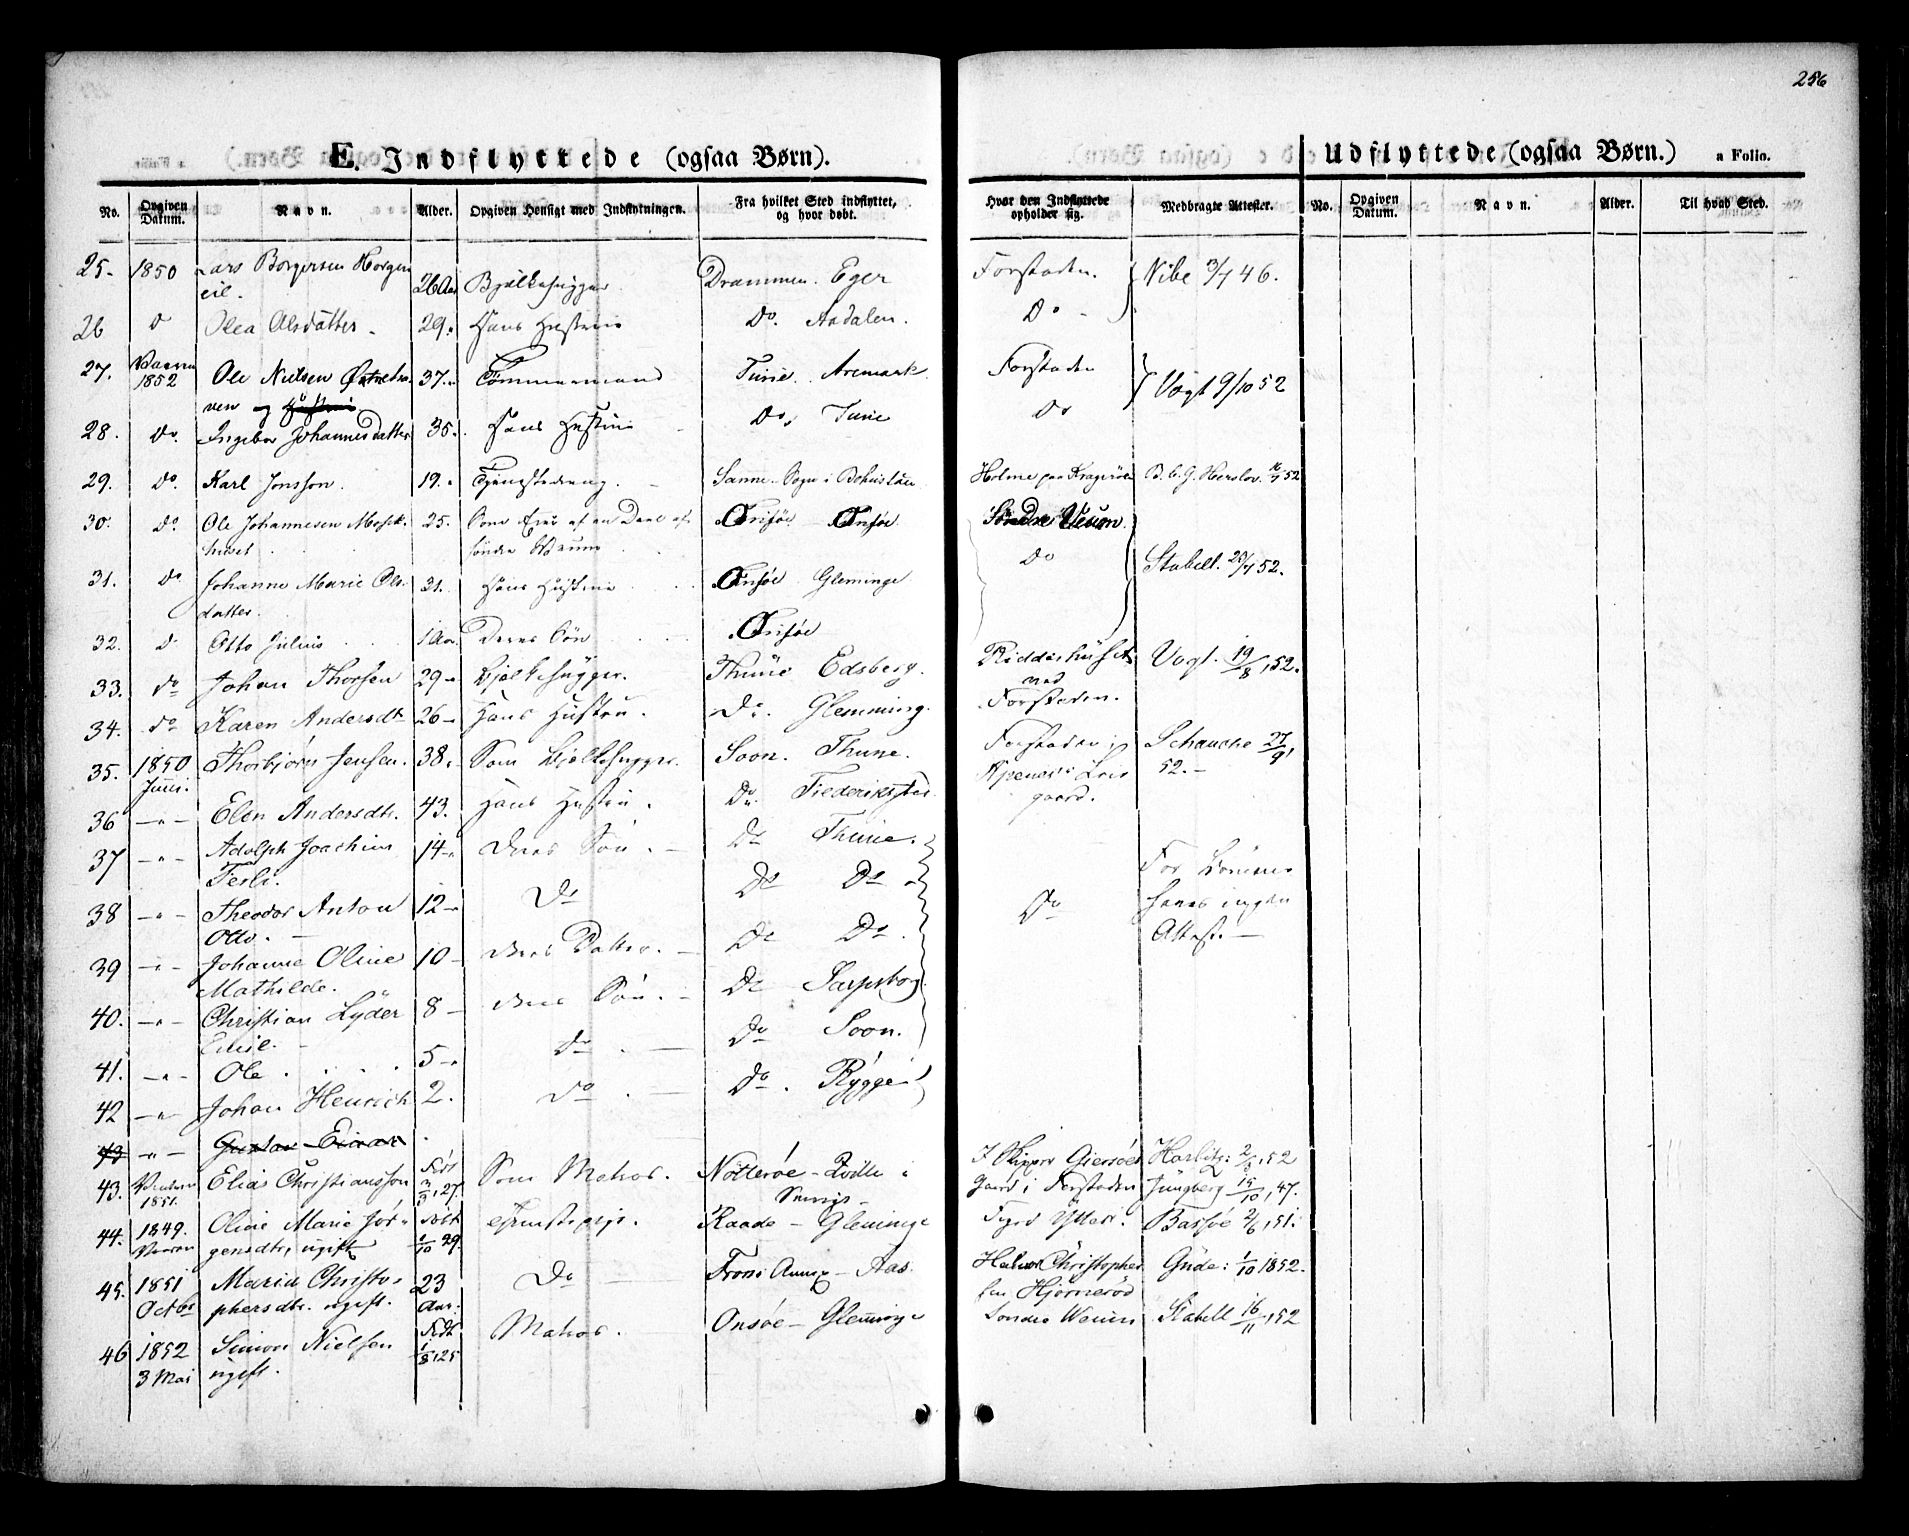 256
E. Indflyttede (ogsaa Børn).
Udflyttede (ogsaa Børn.) a Folio.
No. Opgiven Datum. Navn. Alder. Opgiven Hensigt med Indflytningen. Fra hvilket Sted indflyttet, og hvor døbt. Hvor den Indflyttede opholder sig. Medbragte Attester. No. Opgiven Datum. Navn. Alder. Til hvad Sted.
25. 1850 Lars Borgersen Horgen 26 Aar Bjælkehugger Drammen. Eger Forstaden. Nibe 3/7 46.
eil.
26 Do Olea Olsdatter 29. Hans Hustrue Do. Aadalen. Do
27. Vaaren 1852 Ole Nielsen 37. Tømmermand Tune. Aremark. Forstaden Vogt 9/10 52
ven og Hustrue
28. Do. Ingebor Johannesdatter 35. Hans Hustrue Do. Tune Do
29. Do. Karl Jonsson. 19. Sanne Sogn i Bohuslän Holme paa Kragerøen B. C. G. 52
30. Do Ole Johannesen 25. Som Eier af en Deel af Onsøe Onsøe Søndre Veum.
huset søndre Weum
31. Do Johanne Marie Ols- 31. Hans Hustrue Onsøe Gleminge Do Stabell. 20/7 52.
datter.
32. Do Otto Julius 1 Aar Deres Søn Onsøe
33. Do Johan Thorsen 29 Bjelkehugger. Thune Edsberg. Ridderhuset Vogt. 19/8, 52.
ved
34. Do Karen Andersdtr 26 Hans Hustru. Do. Glemming. Forstaden.
35. 1850 Juni. Thorbjørn Jensen. 38. Som Bjelkehugger. Soon. Thune. Forstaden i Schanche 27/9
52.
gaard.
36 Elen Andersdtr. 43. Hans Hustru. Do. Frederikstad
37 Adolph Joachim 14 deres Søn. Do Thune.
38 Theodor Anton 12 Do Do Do Do For Børnene
Otto. haves ingen
Attest.
39 Johanne Oline 10 deres Datter. Do Do.
Mathilde.
40. Christian Lyder 8 deres Søn. Do Sarpsborg.
Emil.
41. Ole 5 Do Do Soon.
42 Johan Henrich 2. Do Do. Rygge
43 Gustav Einar
43. 1851. Elias Christiansson Født 27. Som Matros. Nøtterøe i I Skipper Giersøes Harbitz: 2/8, 52
Sverig Gaard i Forstaden Ljungberg 15/10, 47.
44. 1849. Vaaren Oline Marie Jør- Født 1/10 29. Tjenestepige. Raade - Gleminge Bassøe 2/6, 51.
gensdtr, ugift
45. 1851 Octbr Maria Christo- 23 Aar. Do Frons Annex - Aas. Halvor Christopher Gude: 1/10 1852.
phersdtr. ugift. sen Hjørnerød
46 1852 3 Mai Simon Nielsen Født 1/8, 25 Matros. Onsøe - Gleminge Søndre Weum Stabell 16/11, 52
ugift.